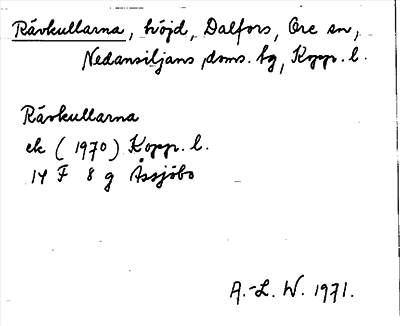 Rävkullarna, höjd, Dalfors, Ore sn,
Nedansiljans doms. hg, Kopp. l.
Rävkullarna
ek (1970) Kopp. l.
14 F 8 g Åssjöbo
A.-L. W. 1971.